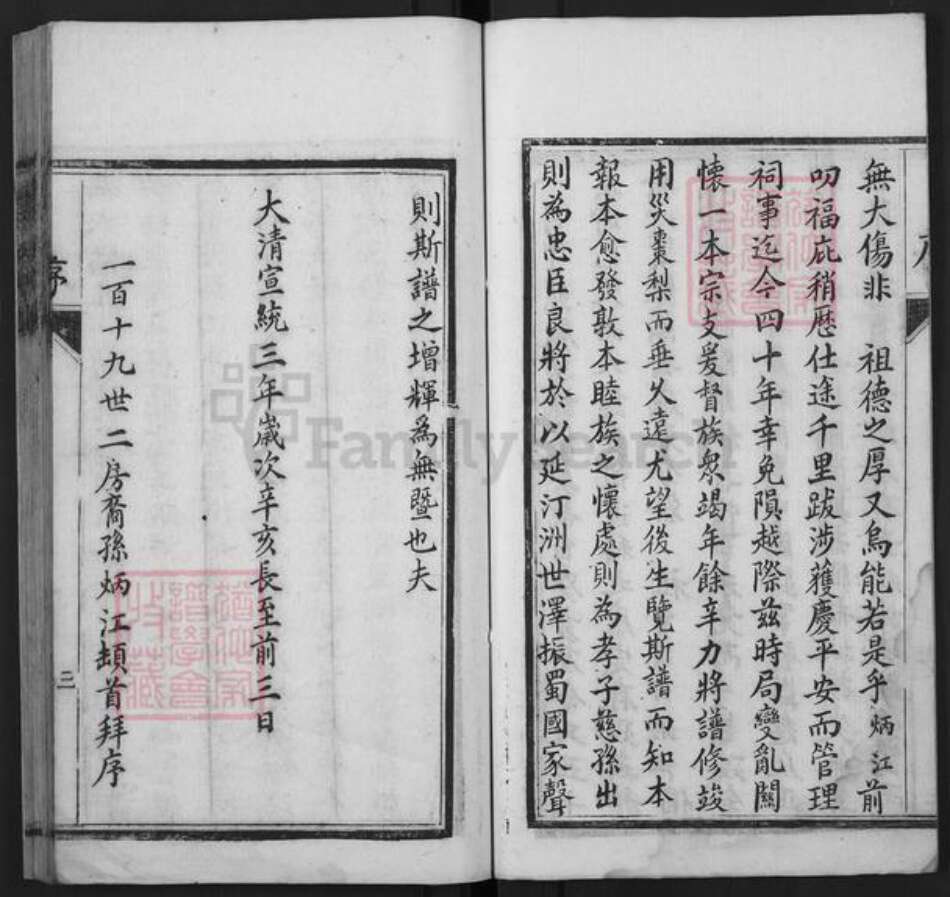 無大傷非　祖德之厚又烏能若是乎炳江前
叨福庇稍歷仕途千里跋涉獲慶平安而管理
祠事迄今四十年幸免隕越際茲時局變亂關
懷一本宗支爰督族衆竭年餘辛力將譜修竣
用災棗梨而垂久遠尤望後生覽斯譜而知本
報本愈發敦本睦族之懷處則為孝子慈孫出
則為忠臣良將於以延汀洲世澤振蜀國家聲
則斯譜之增輝為無暨也夫
大清宣統三年歲次辛亥長至前三日
一百十九世二房裔孫炳江頓首拜序
序
二
FamilySearch